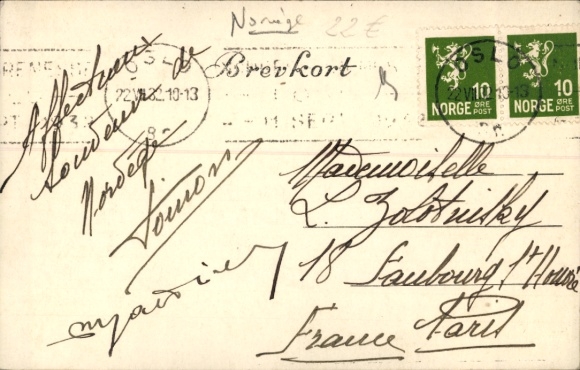 Norvège 22 €
Brevkort
OSLO
22 VII 32. 10-13
OSLO
22 VII 32. 10-13
10
NORGE ØRE
POST
10
NORGE ØRE
POST
Affectueux
Souvenir de
Norvège
Mademoiselle
L. Zolotnisky
18 Faubourg St Honoré
France Paris